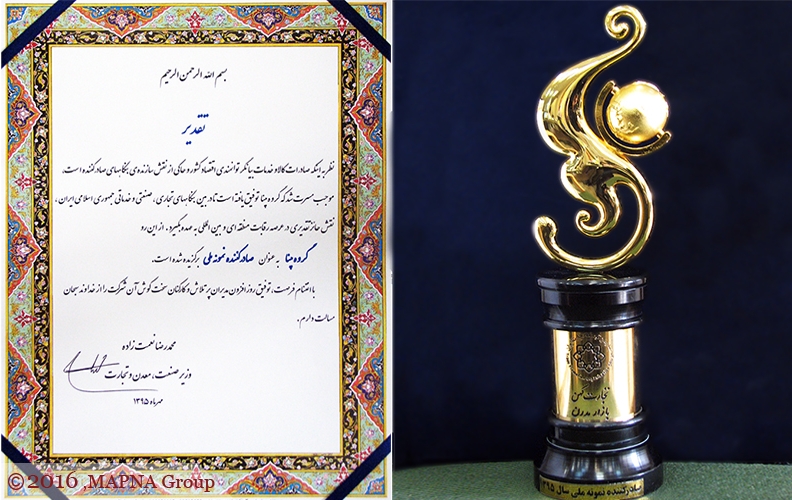 بسم الله الرحمن الرحیم
تقدیر
نظر به اینکه صادرات کالا و خدمات بیانگر توانمندی اقتصاد کشور و حاکی از نقش سازنده‌ی بنگاههای صادرکننده است،
موجب مسرت شد که گروه مپنا توفیق یافته است تا در بین بنگاههای تجاری، صنعتی و خدماتی جمهوری اسلامی ایران،
نقش حائز تقدیری در عرصه رقابت منطقه ای و بین المللی به عهده بگیرد. از این رو
گروه مپنا به عنوان صادرکننده نمونه ملی برگزیده شده است.
با اغتنام فرصت، توفیق روزافزون مدیران پرتلاش و کارکنان سخت کوش آن شرکت را از خداوند سبحان
مسالت دارم.
محمدرضا نعمت زاده
وزیر صنعت، معدن و تجارت
مهرماه ۱۳۹۵
© 2016 MAPNA Group
تجارت کهن
بازار مدرن
صادرکننده نمونه ملی سال ۱۳۹۵